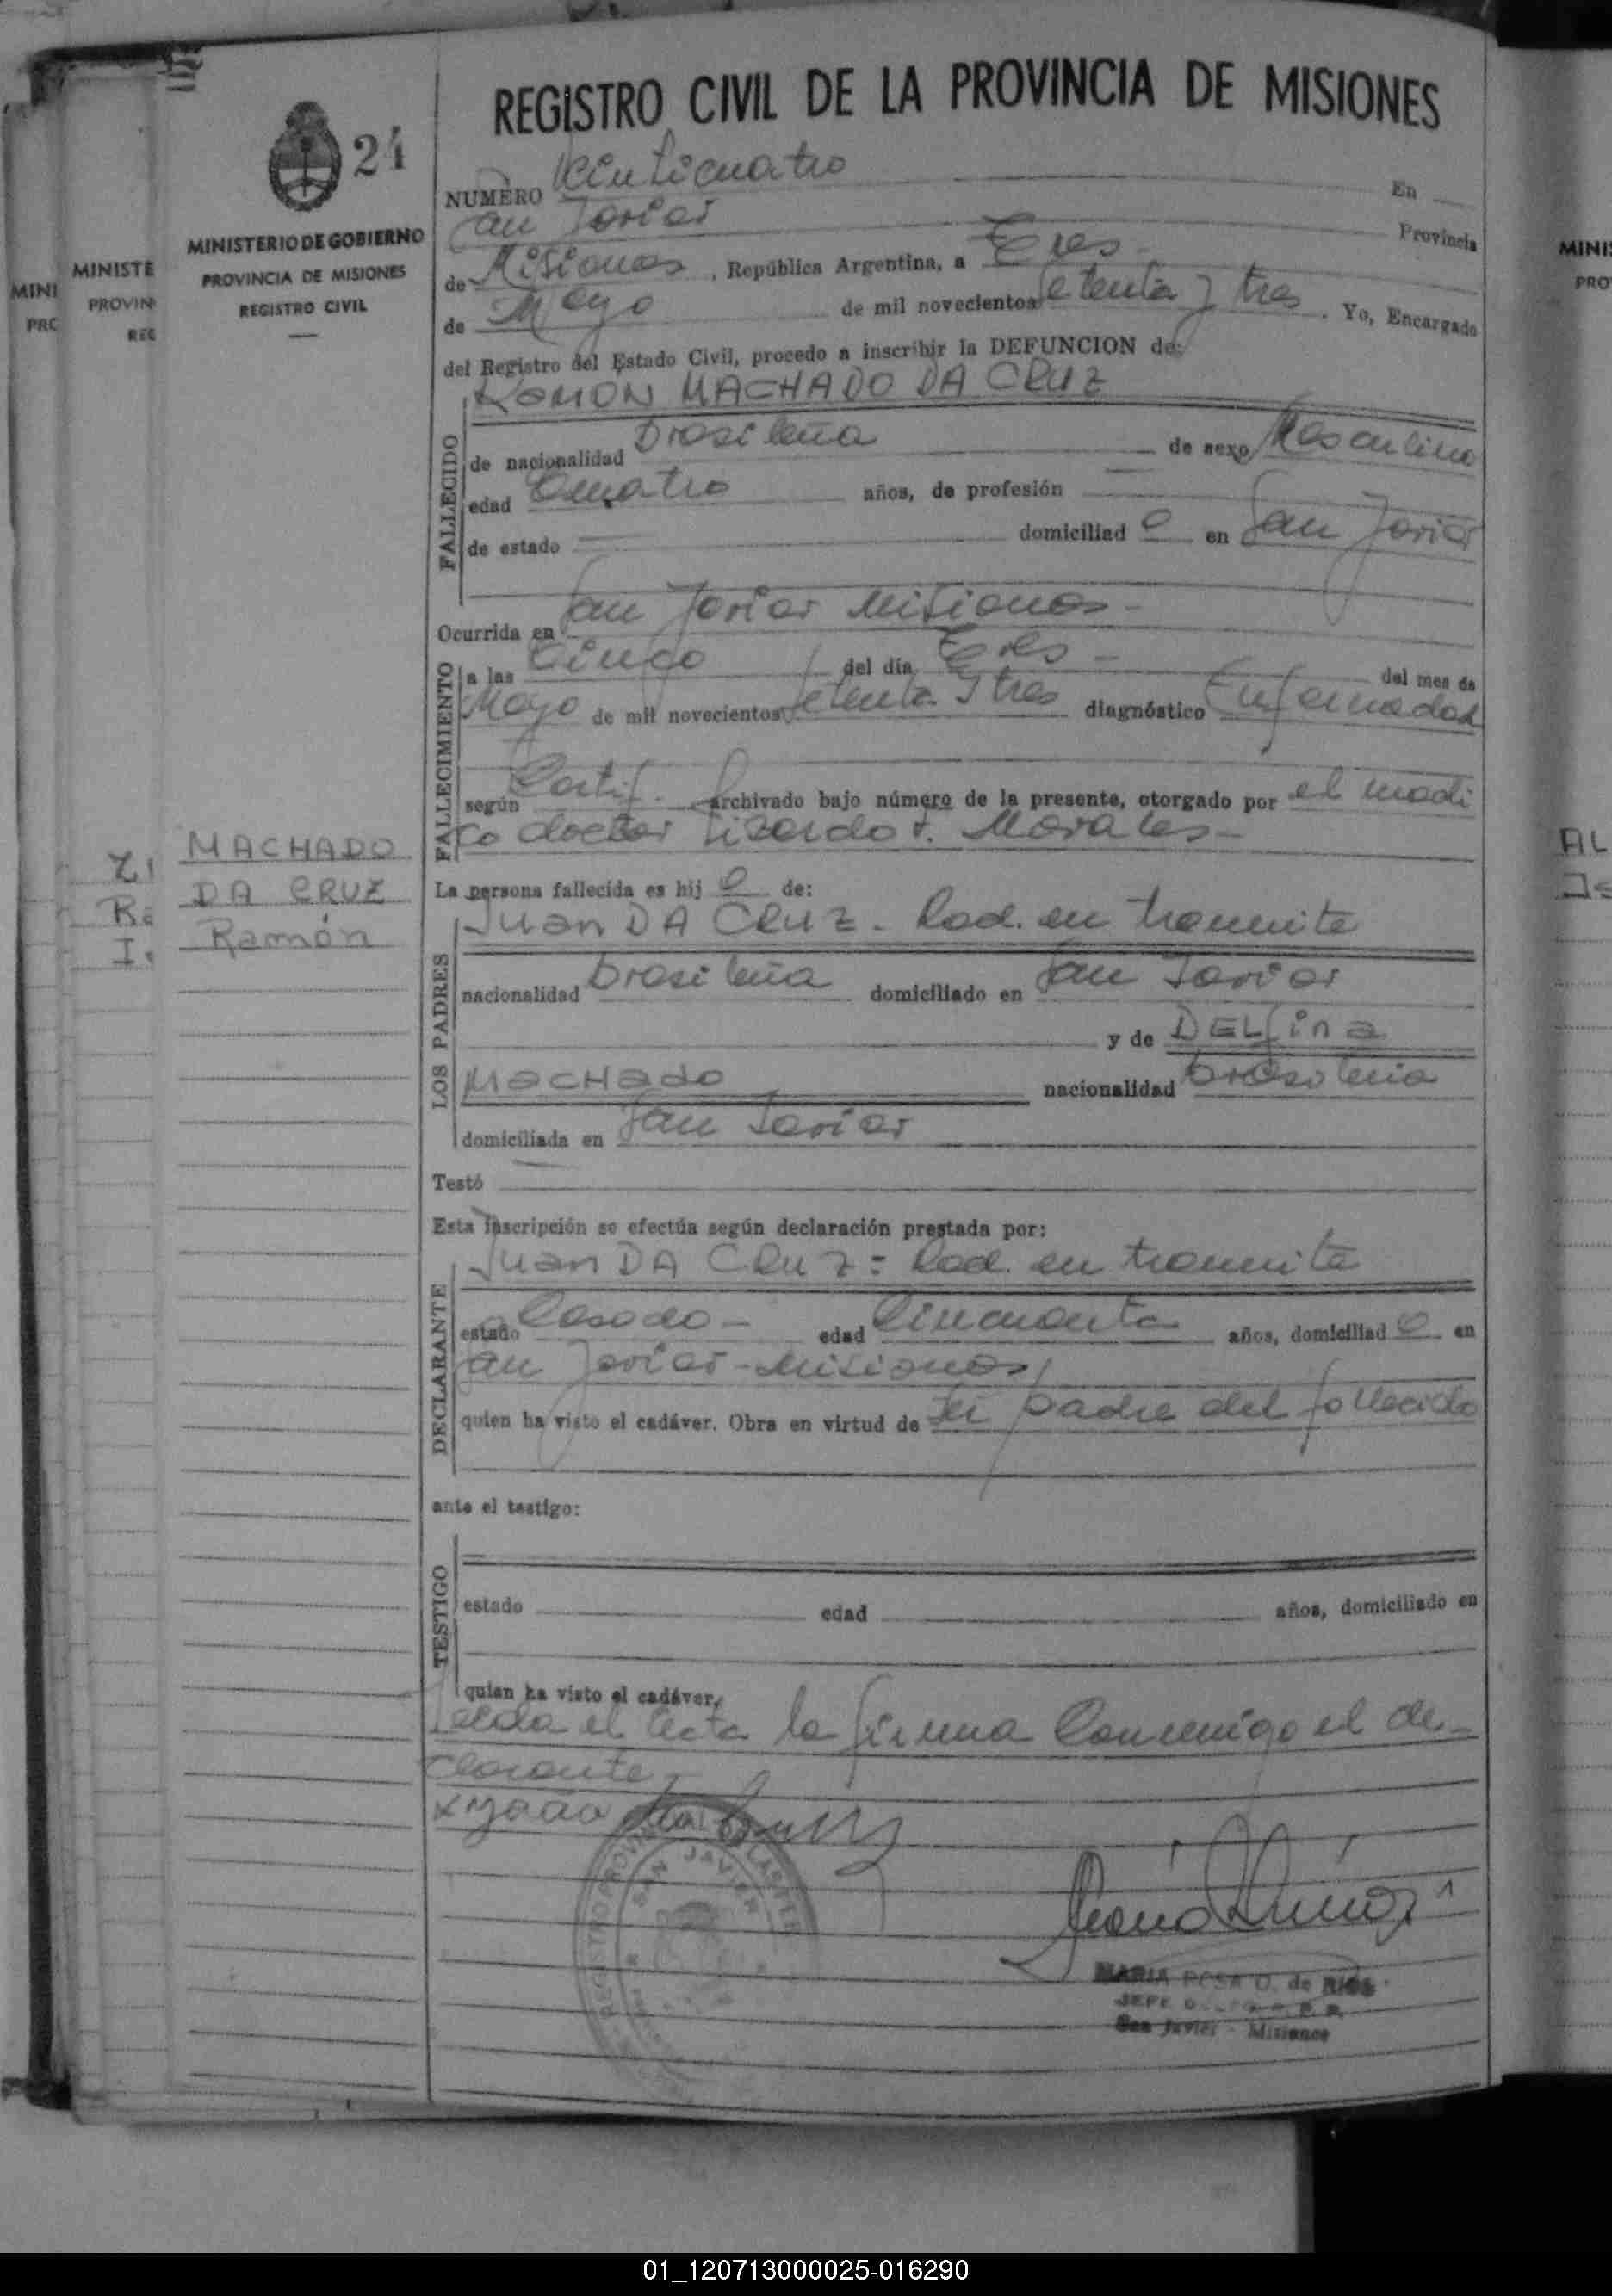 REGISTRO CIVIL DE LA PROVINCIA DE MISIONES
24
MINISTERIO DE GOBIERNO
PROVINCIA DE MISIONES
REGISTRO CIVIL
MINI
PRC
MINISTE
PROVIN
REG
NUMERO Veinticuatro En
San Javier Provincia
de Misiones, República Argentina, a Tres
de Mayo de mil novecientos setenta y tres. Yo, Encargado
del Registro del Estado Civil, procedo a inscribir la DEFUNCION de:
RAMON MACHADO DA CRUZ
FALLECIDO
de nacionalidad brasileña de sexo Masculino
edad Cuatro años, de profesión
de estado domiciliad o en San Javier
Ocurrida en San Javier Misiones
FALLECIMIENTO
a las Cinco del día Tres del mes de
Mayo de mil novecientos setenta y tres diagnóstico Enfermedad
según Certif. archivado bajo número de la presente, otorgado por el medi
co doctor Morales
MACHADO
DA CRUZ
Ramón
La persona fallecida es hij o de:
LOS PADRES
Juan DA CRUZ - Rad. en tramite
nacionalidad brasileña domiciliado en San Javier
y de DELfina
MACHado nacionalidad brasileña
domiciliada en San Javier
Testó
Esta inscripción se efectúa según declaración prestada por:
DECLARANTE
Juan DA CRUZ = Rad. en tramite
estado Casado - edad Cincuenta años, domiciliad o en
San Javier - Misiones
quien ha visto el cadáver. Obra en virtud de ser padre del fallecido
ante el testigo:
TESTIGO
estado edad años, domiciliado en
quien ha visto el cadáver,
Leida el acta la firma Conmigo el de-
clarante
x João da Cruz
SAN JAVIER
MARIA ROSA O. de RIOS
San Javier - Misiones
MINI
PRO
AL
01_120713000025-016290